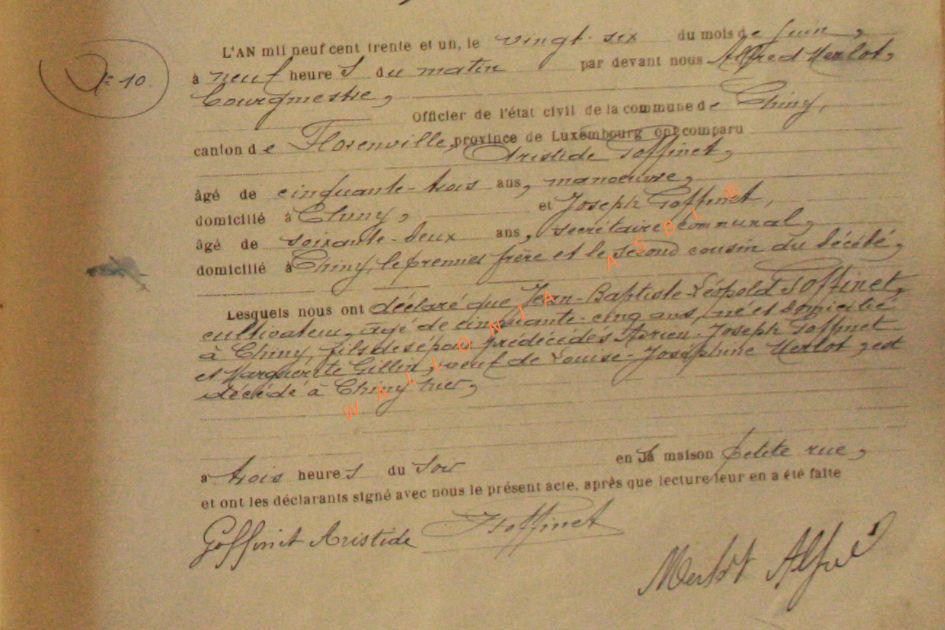 L'AN mil neuf cent trente et un, le vingt-six du mois de juin,
N° 10
à neuf heures du matin par devant nous Alfred Merlot,
bourgmestre,
Officier de l'état civil de la commune de Chiny,
canton de Florenville, province de Luxembourg ont comparu
Aristide Goffinet,
âgé de cinquante-trois ans, manoeuvre,
domicilié à Chiny, et Joseph Goffinet,
âgé de soixante-deux ans, secrétaire communal,
domicilié à Chiny, le premier frère et le second cousin du décédé,
Lesquels nous ont déclaré que Jean-Baptiste-Léopold Goffinet,
cultivateur, âgé de cinquante-cinq ans, né et domicilié
à Chiny, fils des époux prédécédés Adrien-Joseph Goffinet
et Marguerite Gillin, veuf de Louise-Joséphine Merlot, est
décédé à Chiny hier,
à trois heures du soir en sa maison petite rue,
et ont les déclarants signé avec nous le présent acte, après que lecture leur en a été faite
Goffinet Aristide
JGoffinet
Merlot Alfred
WALLONIA ASBL